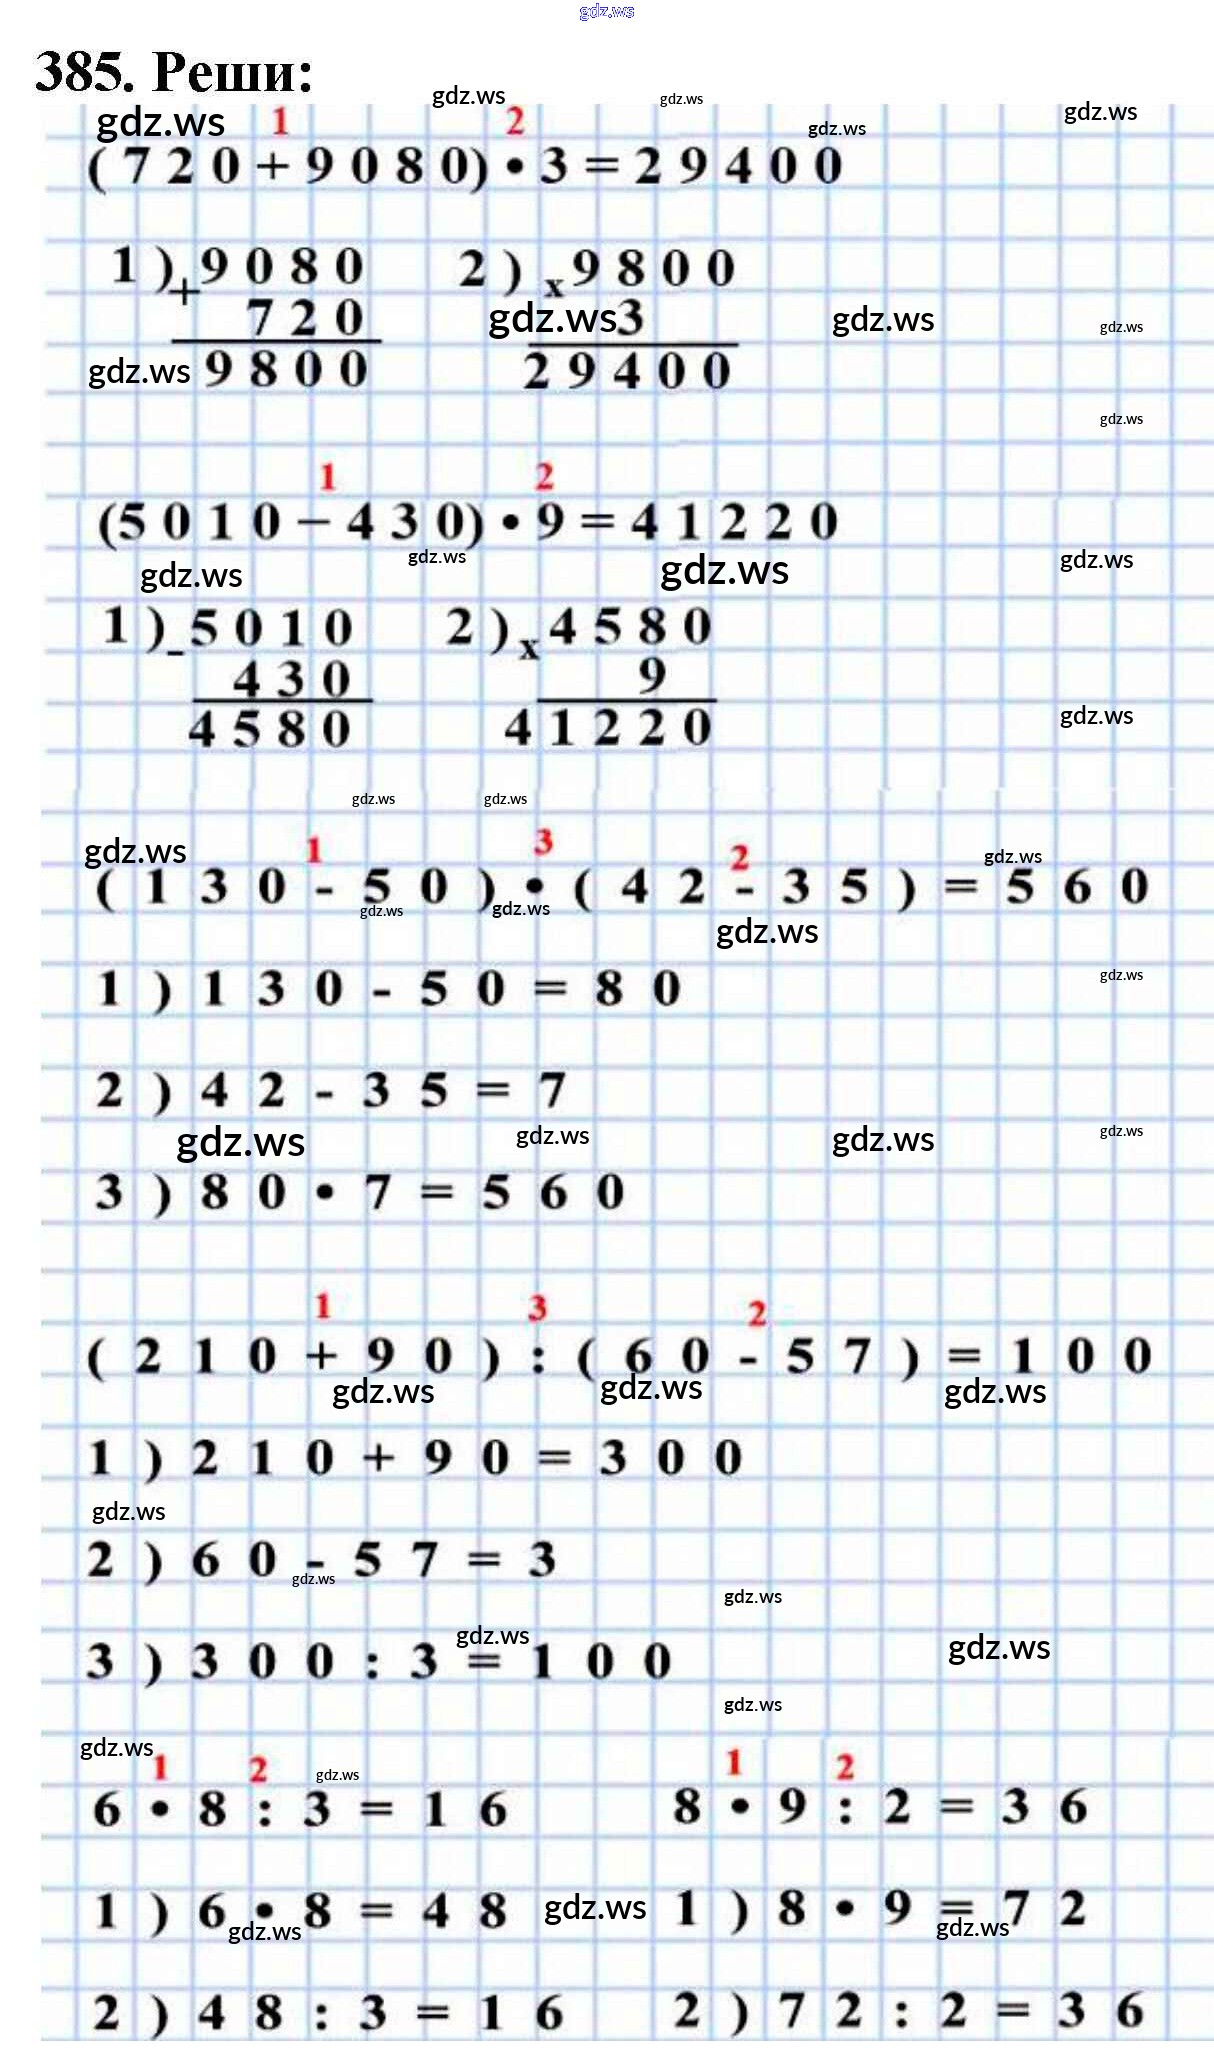 gdz.ws
385. Реши:
gdz.ws gdz.ws gdz.ws gdz.ws gdz.ws
1 2
(720+9080)•3=29400
1) 9080 2) 9800
+ x
720 gdz.ws 3 gdz.ws gdz.ws
gdz.ws 9800 29400
gdz.ws
1 2
(5010−430)•9=41220
gdz.ws gdz.ws gdz.ws gdz.ws
1) 5010 2) 4580
- x
430 9
4580 41220 gdz.ws
gdz.ws gdz.ws
gdz.ws 1 3 2 gdz.ws
(130-50)•(42-35)=560
gdz.ws gdz.ws gdz.ws
1)130-50=80 gdz.ws
2)42-35=7
gdz.ws gdz.ws gdz.ws gdz.ws
3)80•7=560
1 3 2
(210+90):(60-57)=100
gdz.ws gdz.ws gdz.ws
1)210+90=300
gdz.ws
2)60-57=3
gdz.ws gdz.ws
gdz.ws gdz.ws
3)300:3=100
gdz.ws
gdz.ws 1 2 gdz.ws 1 2
6•8:3=16 8•9:2=36
1)6•8=48 gdz.ws 1)8•9=72
gdz.ws gdz.ws
2)48:3=16 2)72:2=36